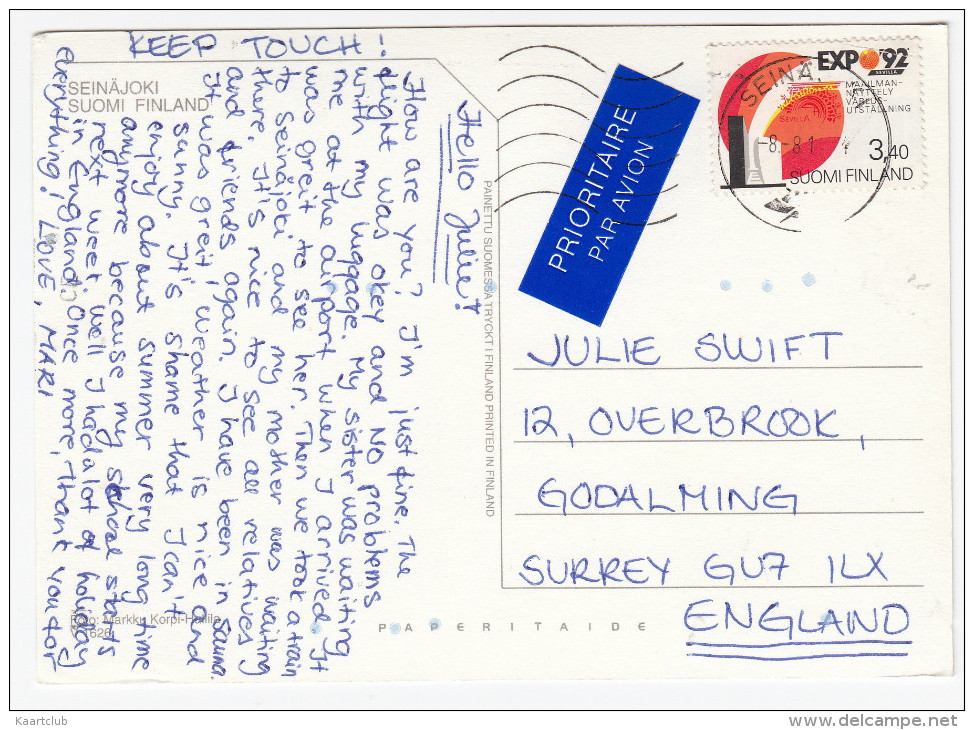 KEEP TOUCH!
SEINÄJOKI
SUOMI FINLAND
Hello Julie!
How are you? I'm just fine. The
flight was okey and NO problems
with my luggage. My sister was waiting
me at the airport when I arrived. It
was greit to see her. Then we took a train
to Seinäjoki and my mother was waiting
there. It's nice to see all relatives
and friends again. I have been in sauna.
It was greit, weather is nice and
sunny. It's shame that I can't
enjoy about summer very long time
anymore because my school starts
next week. well I had a lot of holiday
in England. Once more, Thank you for
everything! LOVE, MARI
Foto: Markku Korpi-Hallila
1626
PAINETTU SUOMESSA TRYCKT I FINLAND PRINTED IN FINLAND
PAPERITAIDE
PRIORITAIRE
PAR AVION
EXPO '92
SEVILLA
MAAILMAN-
NÄYTTELY
VÄRLDS-
UTSTÄLLNING
SEVILLA
3,40
SUOMI FINLAND
SEINÄ
-8.-8.1
JULIE SWIFT
12, OVERBROOK,
GODALMING
SURREY GU7 1LX
ENGLAND
Kaartclub
delcampe.net